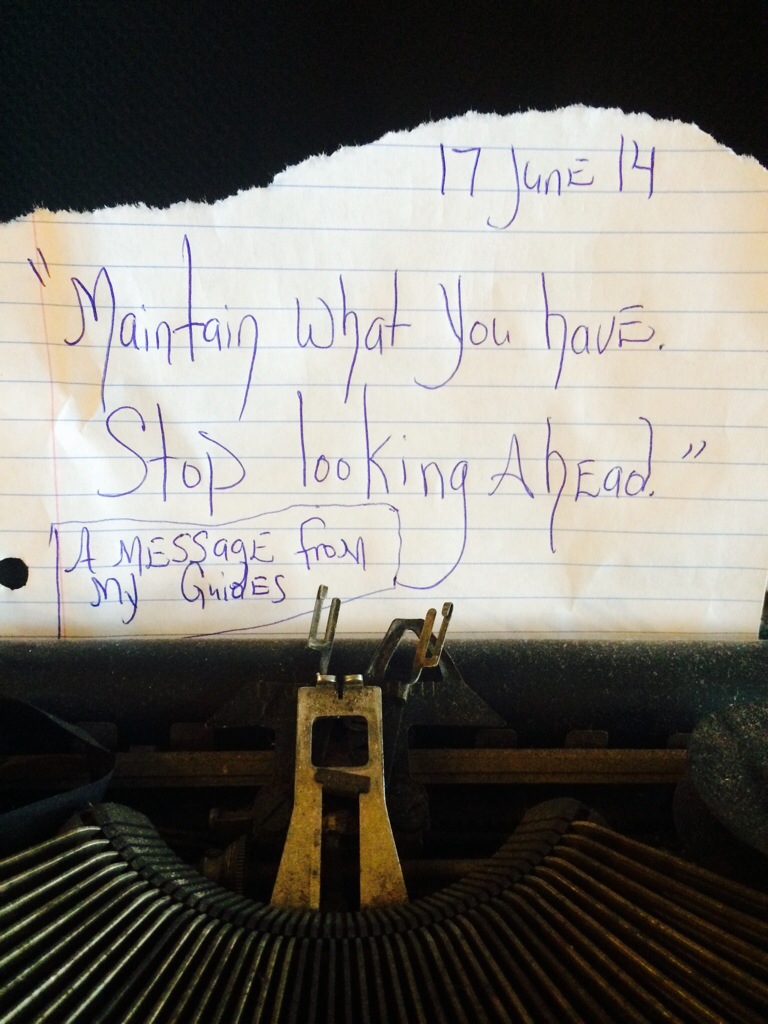 17 June 14
"Maintain What You have.
Stop looking Ahead."
A MESSage from
My GuidES